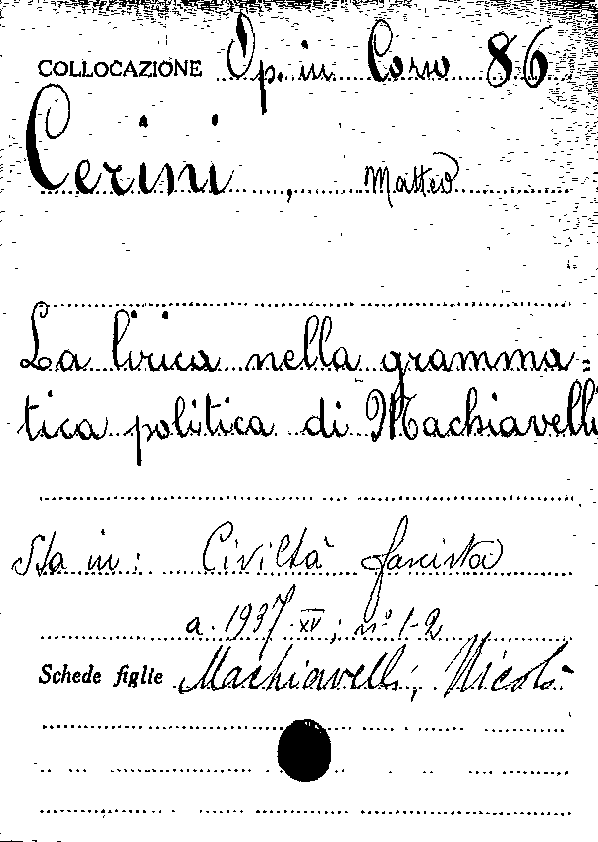 COLLOCAZIONE Op. in Corso 86
Cerini, Matteo
La lirica nella gramma=
tica politica di Machiavelli
Sta in: Civiltà fascista
a. 1937-XV; n° 1-2
Schede figlie Machiavelli, Nicolò